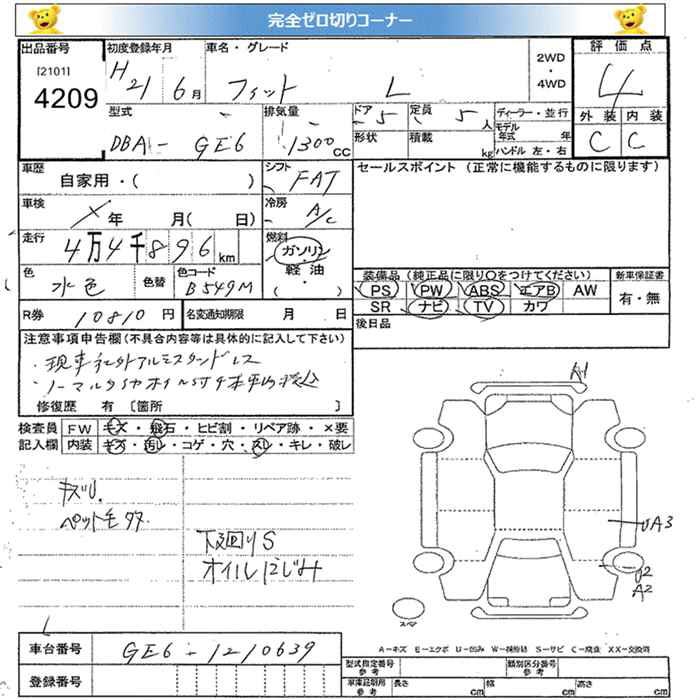 完全ゼロ切りコーナー
出品番号 初度登録年月 車名・グレード 2WD ・ 4WD 評価点
[2101]
4209 H21 6月 フィット L 4
型式 排気量 ドア 5 定員 5人 ディーラー・並行 外装 内装
DBA- GE6 1300CC 形状 積載 kg モデル年式 年 C C
ハンドル 左・右
車歴 自家用・( ) シフト FAT セールスポイント (正常に機能するものに限ります)
車検 X年 月( 日) 冷房 A/C
走行 4万4千896km 燃料 ガソリン
軽・油
( )
色 水色 色替 色コード B549M
装備品 (純正品に限り○をつけてください) 新車保証書
PS PW ABS エアB AW 有・無
SR ナビ TV カワ
R券 10810円 名変通知期限 月 日 後日品
注意事項申告欄(不具合内容等は具体的に記入して下さい)
・現車社外アルミスタンドレス
・ノーマルタイヤホイル付4本
修復歴 有 〔箇所 〕
検査員 FW キズ・飛石・ヒビ割・リペア跡・×要
記入欄 内装 キズ・汚レ・コゲ・穴・スレ・キレ・破レ
A1
キズリ.
ペット毛
下廻りS
オイルにじみ
UA3
U2
A2
スペア
A-キズ E-エクボ U-凹み W-補修跡 S-サビ C-腐食 XX-交換済
車台番号 GE6-1210639
型式指定番号 参考 類別区分番号 参考
登録番号 車庫証明用 参考 長さ cm 幅 cm 高さ cm